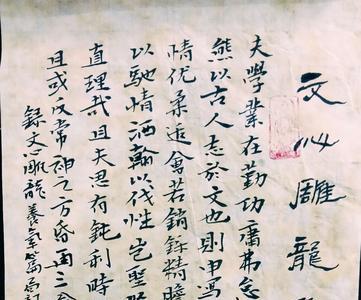 文心雕龍
夫學業在勤功庸弗怠
熊以古人志於文也則申写
情优柔适會若銷鑠精膽
以馳情洒翰以伐性岂聖
直理哉且夫思有鈍利時
且或反常神之方昏再三
錄文心雕龍養氣篇